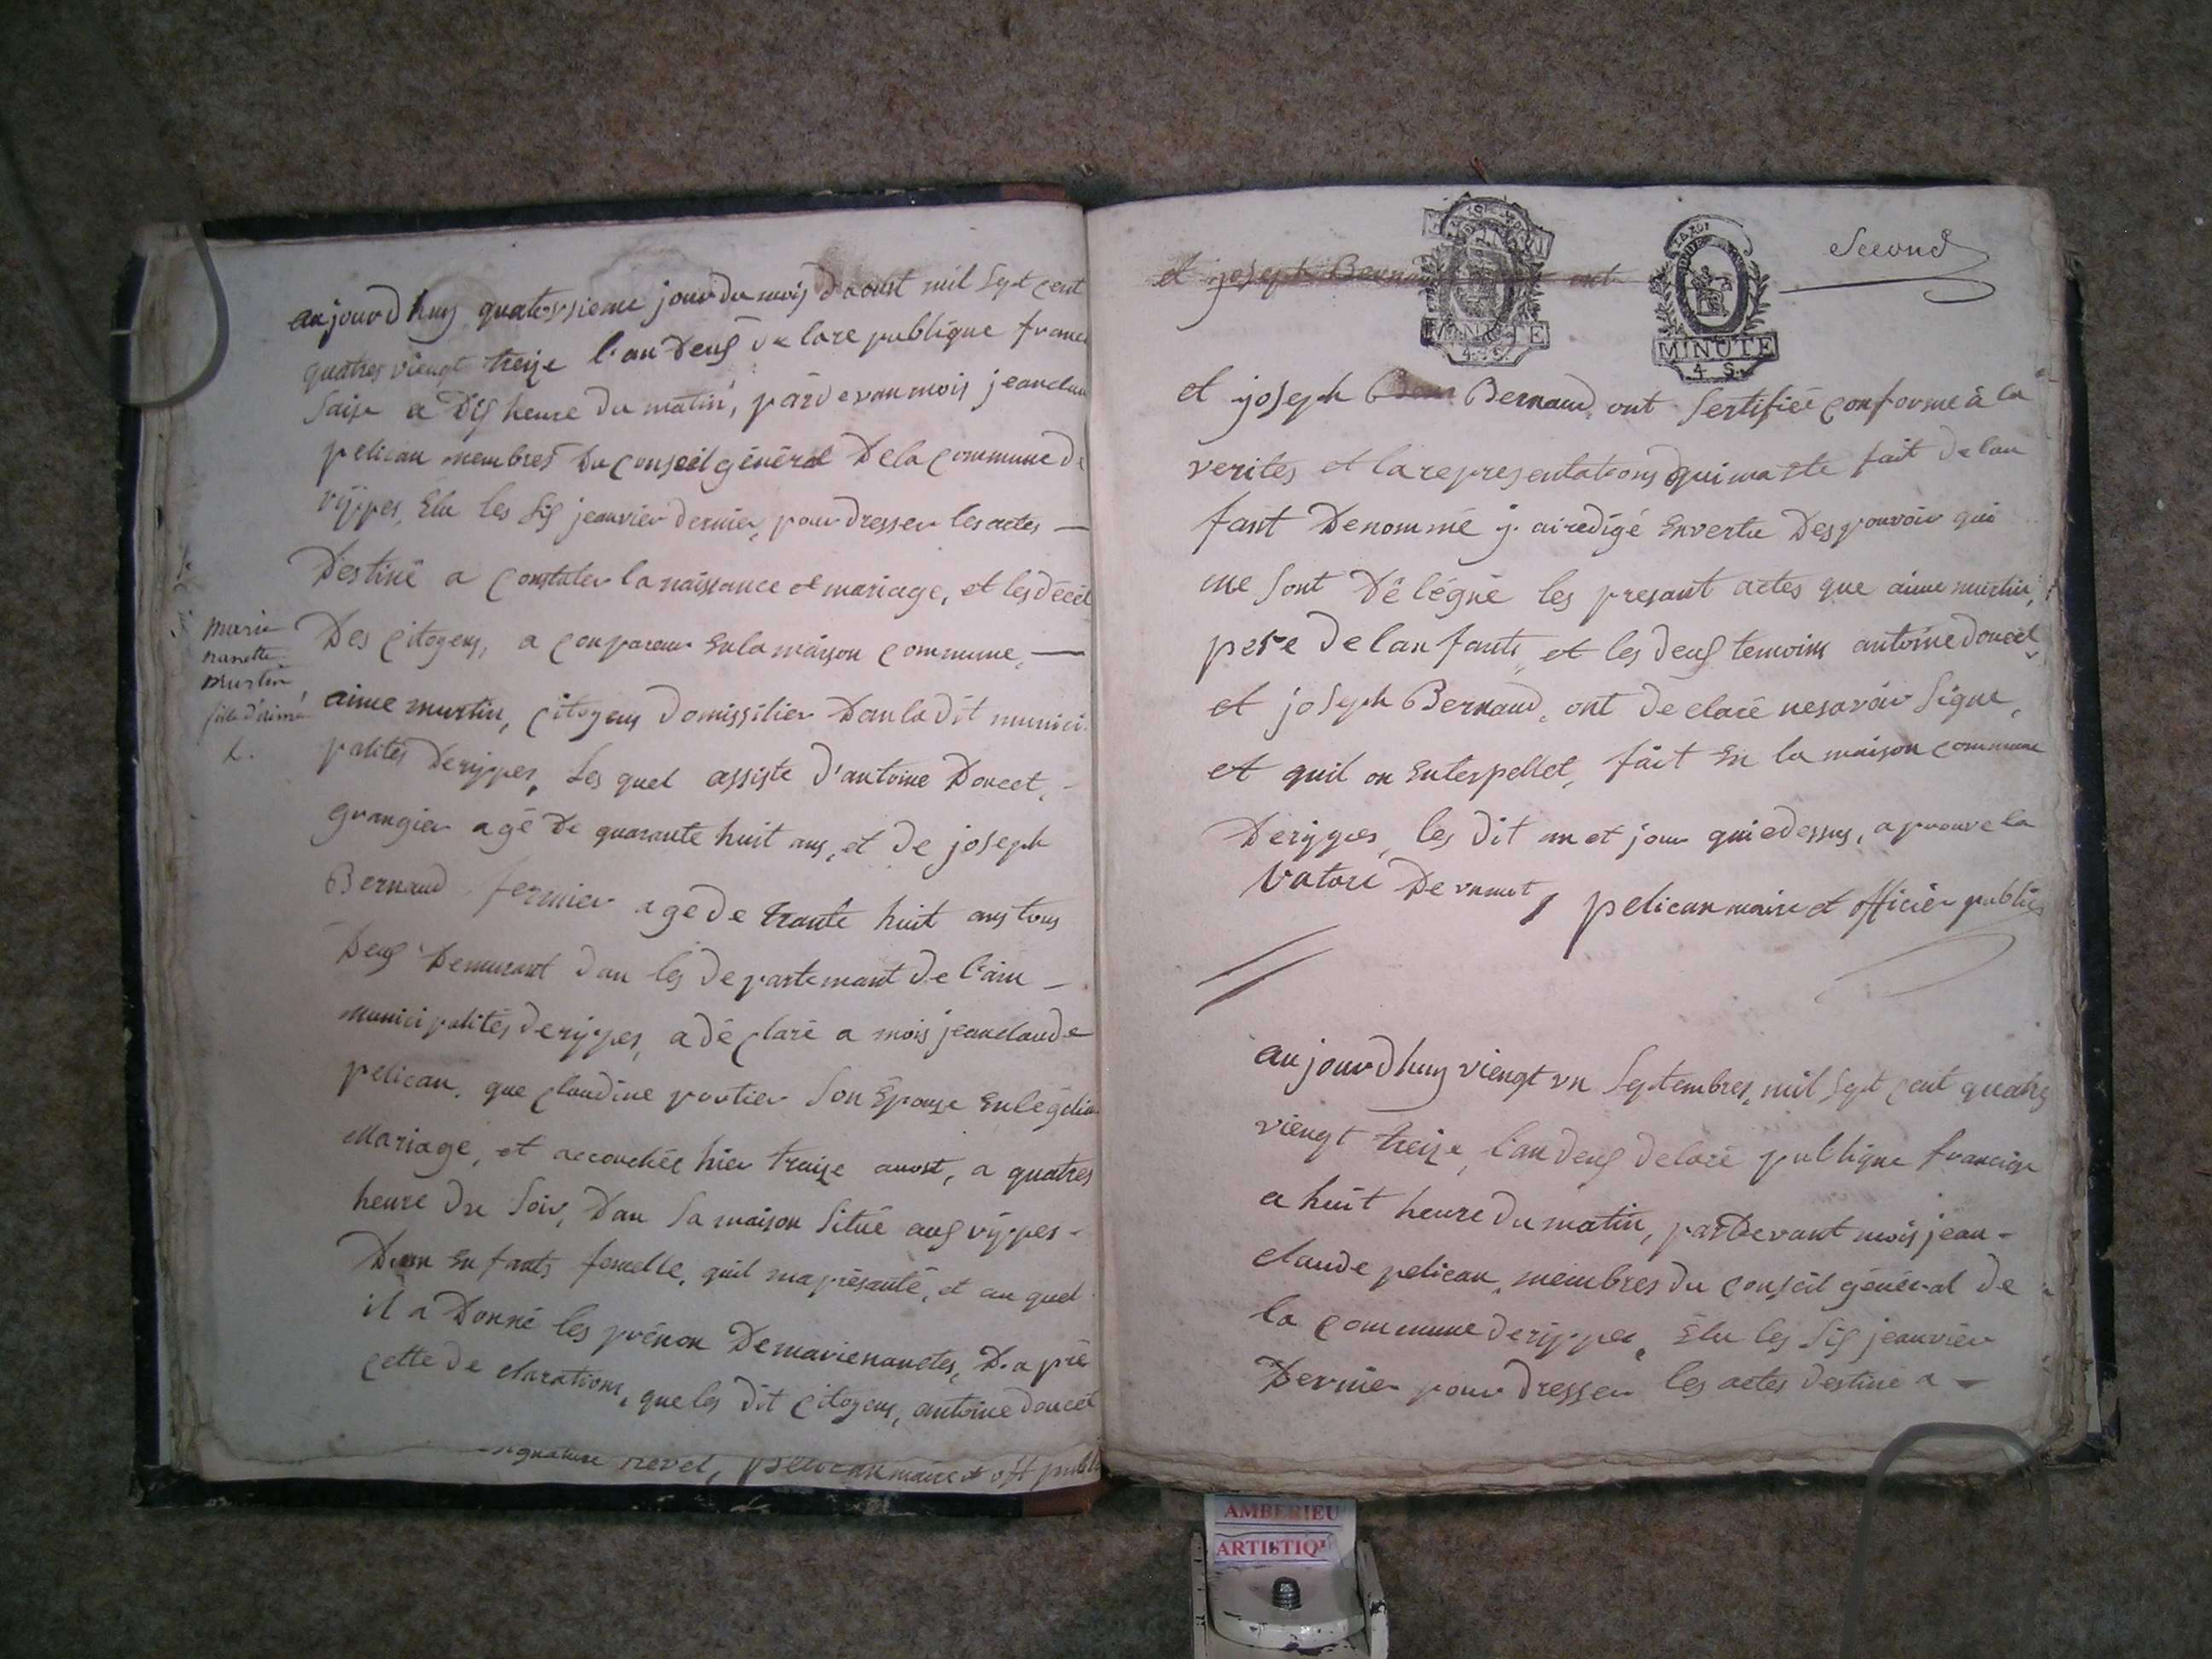 aujourdhuy quatorsieme jour du mois daoust mil sept cent
quatres viengt treize l'an deus de lare publique france
saise a dis heure du matin, pardevan mois jeanclau
pelican membres du conseil géneral de la commune de
ryppes, élu les sis jeanvier dernier, pour dresser les actes —
Destiné a constater la naissance et mariage, et les décét
Des citoyens, a conpareu en la maison commune, —
marie
nanette
murtin,
fille d'aimé
aime murtin, citoyens domissilier dan la dit munici
palités deryppes, les quel assiste d'antoine Doucet,
grangier agé de quarante huit ans, et de joseph
Bernaud fermier agé de trante huit ans tous
Deus demurant dan les departemant de l'ain —
municipalités deryppes, a déclaré a mois jeanclaude
pelican, que claudine portier son épouse en légélim
Mariage, et accouchée hier traize auost, a quatres
heure du soir, dan sa maison situé aus ryppes -
Dun enfants femelle, quil ma présanté, et au quel
il a donné les prénon De marie nanetes, D. a pré
cette de clarations, que les dit citoyens, antoine doucet
signature nevel, pelican maire et off publi
et joseph Bernaud ont
MINUTE
4. S.
MINUTE
4 S.
Second
et joseph Bernaud, ont sertifiée conforme à la
verites et la representations qui ma ete fait de lan
fant Denommé j. ai redigé en vertu Des pouvoir qui
me sont Délégué les presant actes que aime murtin,
pere de lan fants, et les deus temoins antoine doucet
et joseph Bernaud, ont declaré ne savoir signe,
et quil on enterpellet, fait en la maison commune
Deryppes, les dit an et jour quiedessus, aprouve la
pelican maire et officier publics
aujourdhuy viengt un Septembres, mil sept cent quatres
viengt treize, l'an deus de laré publique francaise
a huit heure du matin, pardevant mois jean -
claude pelican, membres du conseil géneral de
la commune deryppes, élu les sis jeanvier
Dernier pour dresser les actes destiné a —
AMBERIEU
ARTISTIQU